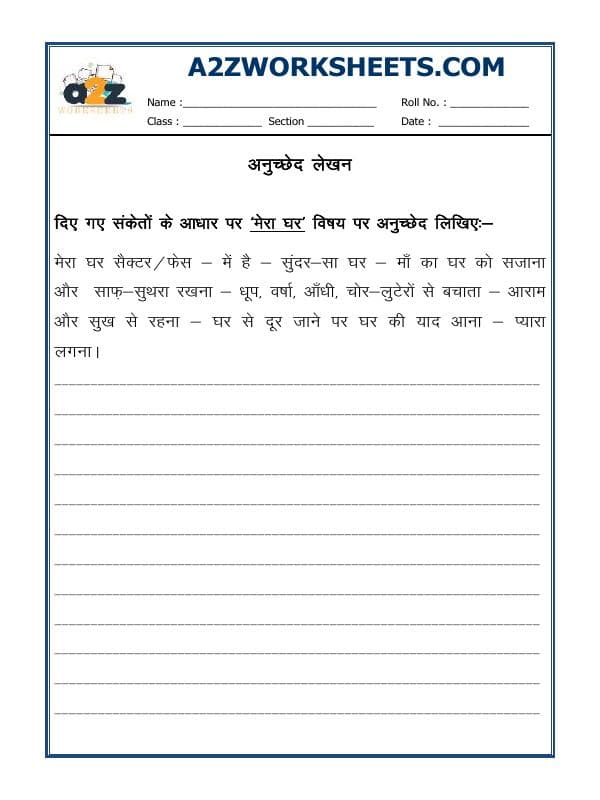 a2z
WORKSHEETS
A2ZWORKSHEETS.COM
Name :____________________________ Roll No. : ____________
Class : ______________ Section ____________ Date : ______________
अनुच्छेद लेखन
दिए गए संकेतों के आधार पर ‘मेरा घर’ विषय पर अनुच्छेद लिखिए:–
मेरा घर सैक्टर/फेस – में है – सुंदर–सा घर – माँ का घर को सजाना
और साफ़–सुथरा रखना – धूप, वर्षा, आँधी, चोर–लुटेरों से बचाता – आराम
और सुख से रहना – घर से दूर जाने पर घर की याद आना – प्यारा
लगना।